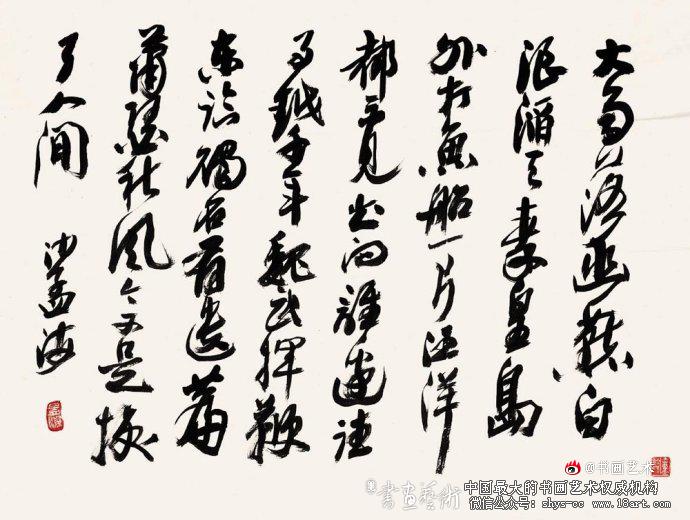 大雨落幽燕白
浪滔天秦皇島
外打魚船一片汪洋
都不見知向誰邊往
事越千年魏武揮鞭
東臨碣石有遺篇
蕭瑟秋風今又是換
了人間
沙孟海
@书画艺术
書畫藝術
中国最大的书画艺术权威机构
微信公众号: shys-cc www.18art.com